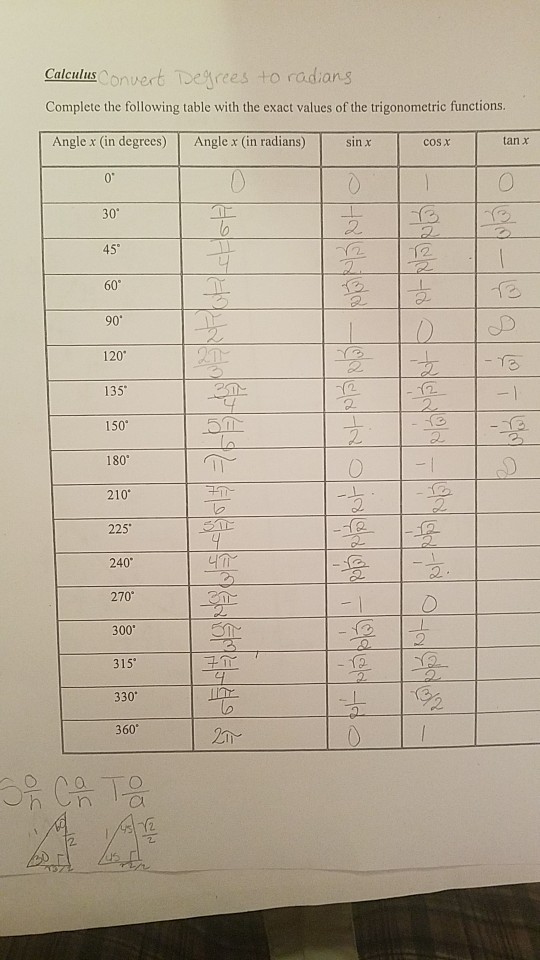 Calculus Convert Degrees to radians
Complete the following table with the exact values of the trigonometric functions.
Angle x (in degrees) Angle x (in radians) sin x cos x tan x
0° 0 0 1 0
30° π/6 1/2 √3/2 √3/3
45° π/4 √2/2 √2/2 1
60° π/3 √3/2 1/2 √3
90° π/2 1 0 ∞
120° 2π/3 √3/2 -1/2 -√3
135° 3π/4 √2/2 -√2/2 -1
150° 5π/6 1/2 -√3/2 -√3/3
180° π 0 -1 ∞
210° 7π/6 -1/2 -√3/2
225° 5π/4 -√2/2 -√2/2
240° 4π/3 -√3/2 -1/2
270° 3π/2 -1 0
300° 5π/3 -√3/2 1/2
315° 7π/4 -√2/2 √2/2
330° 11π/6 -1/2 √3/2
360° 2π 0 1
S o/h C a/h T o/a
1 60 1/2 1 45 √2/2
30 √3/2 45 √2/2